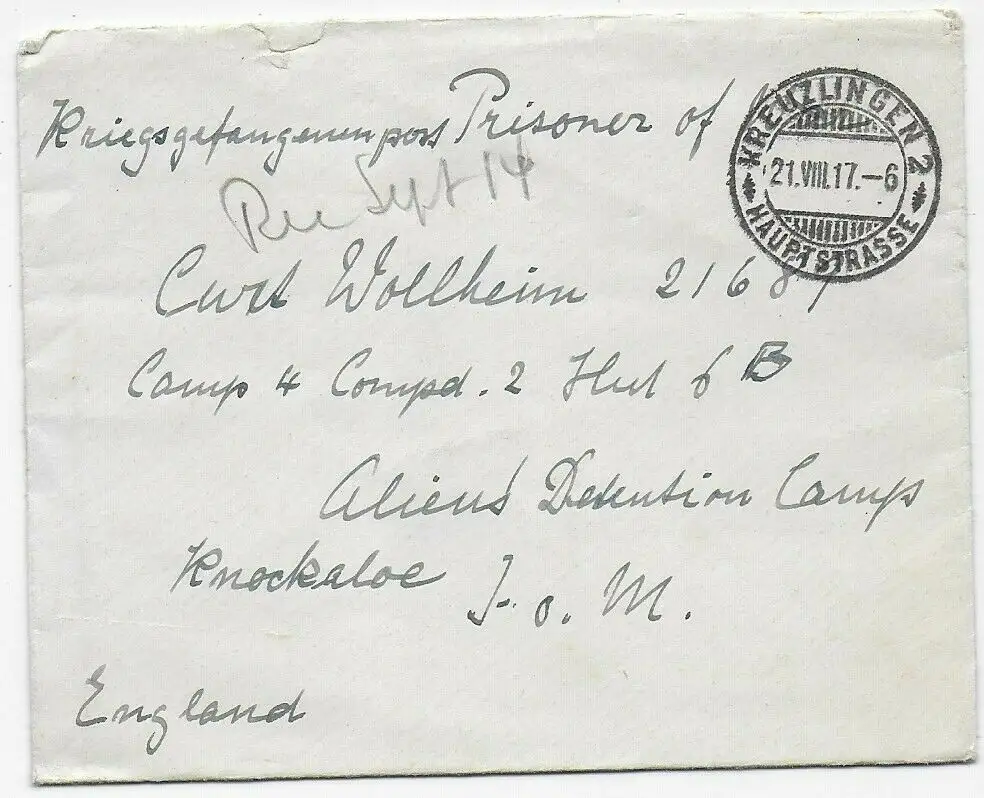 Kriegsgefangenenpost Prisoner of
KREUZLINGEN 2
21.VIII.17.-6
HAUPTSTRASSE
Rec Sept 14
Curt Wollheim 21687
Camp 4 Compd. 2 Hut 6 B
Aliens' Detention Camp
Knockaloe I. o. M.
England